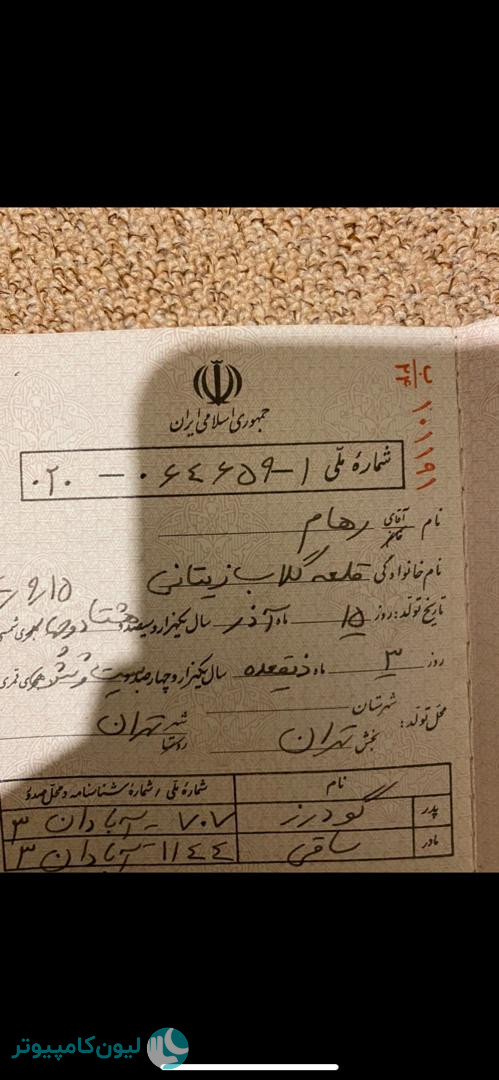 جمهوری اسلامی ایران
ب
۲۴
۱۰۱۱۹۱
شمارهٔ ملّی ۱-۰۶۴۶۵۹-۰۲۰
نام آقای رهام
خانم
نام خانوادگی قلعه گلاب زیتانی
تاریخ تولد: روز ۱۵ ماه آذر سال یکهزار و سیصد و هشتاد و چهار هجری شمسی
روز ۳ ماه ذیقعده سال یکهزار و چهارصد و بیست و شش هجری قمری
محل تولد: شهرستان
بخش تهران شهر تهران
روستا
نام شمارهٔ ملی / شمارهٔ شناسنامه و محل صدور
پدر گودرز ۷۰۷ - آبادان ۳
مادر ساقی ۱۱۴۴ - آبادان ۳
لیون کامپیوتر